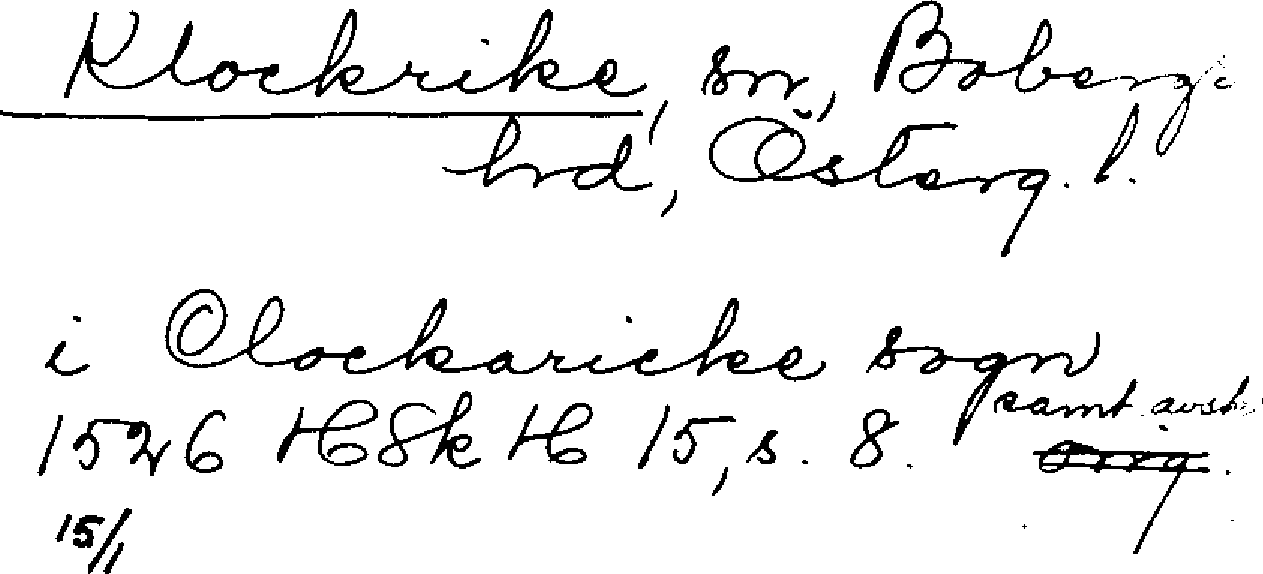 Klockrike, sn, Bobergs
hrd, Österg. l.
i Clockaricke sogn
1526 HSkH 15, s. 8. samt. avskr.
Orig.
15/1